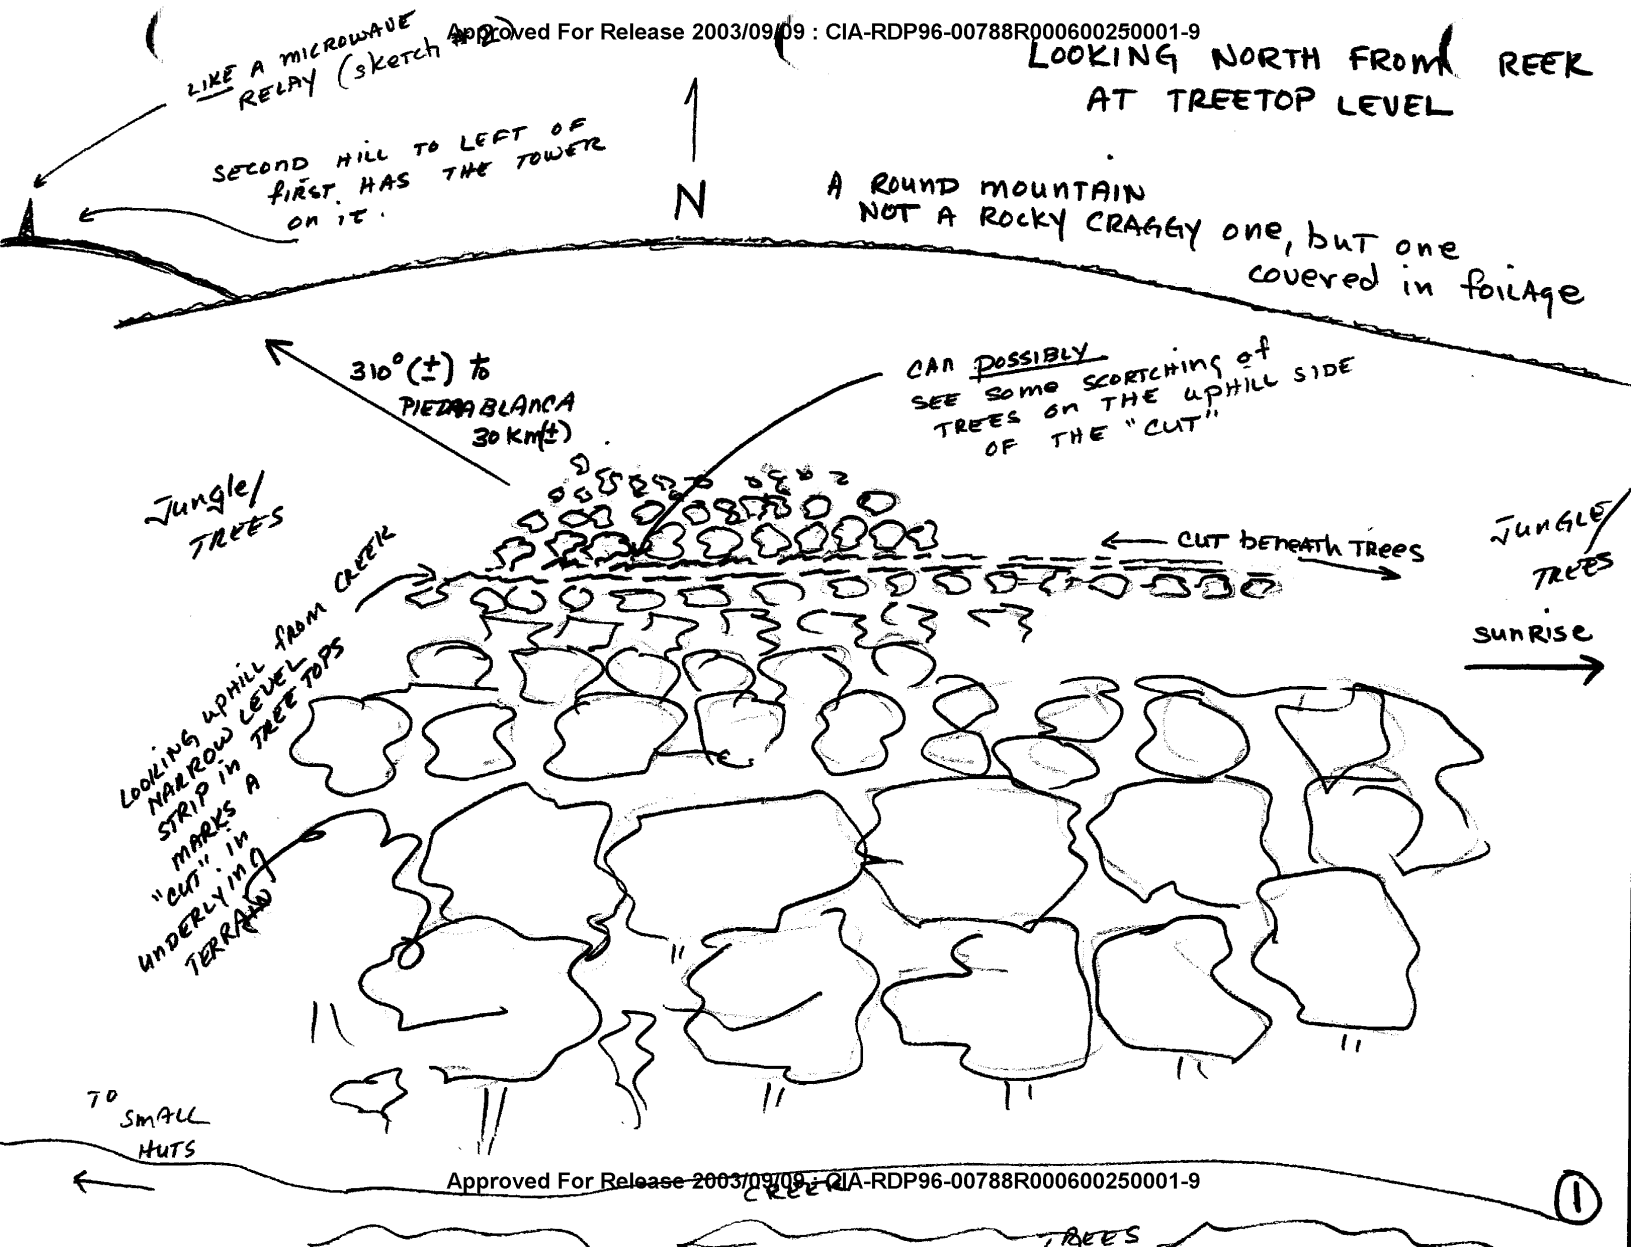 Approved For Release 2003/09/09 : CIA-RDP96-00788R000600250001-9
LIKE A MICROWAVE
RELAY (sketch #2)
LOOKING NORTH FROM REEK
AT TREETOP LEVEL
SECOND HILL TO LEFT OF
FIRST HAS THE TOWER
on it.
N
A ROUND MOUNTAIN
NOT A ROCKY CRAGGY one, but one
covered in foilage
310° (±) to
PIEDRABLANCA
30 Km(±)
CAN POSSIBLY
SEE some SCORTCHING of
TREES on THE UPHILL SIDE
OF THE "CUT"
Jungle/
TREES
CUT beneath TREES
JUNGLE/
TREES
sunrise
LOOKING UPHILL from CREEK
NARROW LEVEL
STRIP in TREE TOPS
MARKS A
"CUT" in
UNDERLYING
TERRAIN
TO
SMALL
HUTS
Approved For Release 2003/09/09 : CIA-RDP96-00788R000600250001-9
CREEK
1
TREES